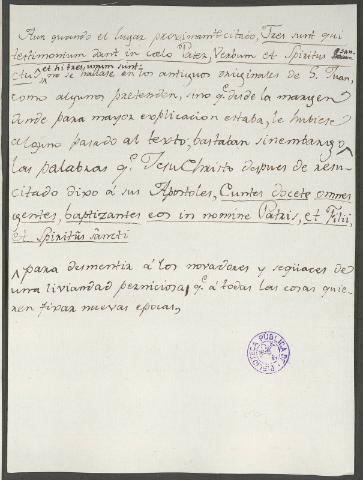 Aun quando el lugar proximamte. citado, Tres sunt qui
testimonium dant in cœlo Pater, Verbum et Spiritus
et hi tres, unum sunt:
no se hallase en los antiguos originales de S. Juan,
como algunos pretenden, sino q.e desde la margen
donde para mayor explicacion estaba, le hubiese
alguno pasado al texto; bastaban sinembargo
las palabras q.e JesuChristo despues de resu-
citado dixo á sus Apostoles, Euntes docete omnes
gentes, baptizantes eos in nomine Patris, et Filii,
et Spiritûs sancti
para desmentir á los novadores y seqüaces de
una liviandad perniciosa, q.e á todas las cosas quie-
ren fixar nuevas epocas,
BIBLIOTECA PÚBLICA DE